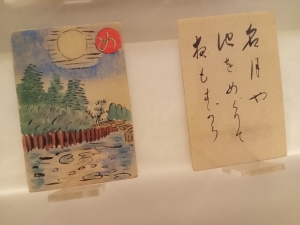 め
名月や
池をめぐりて
夜もすがら